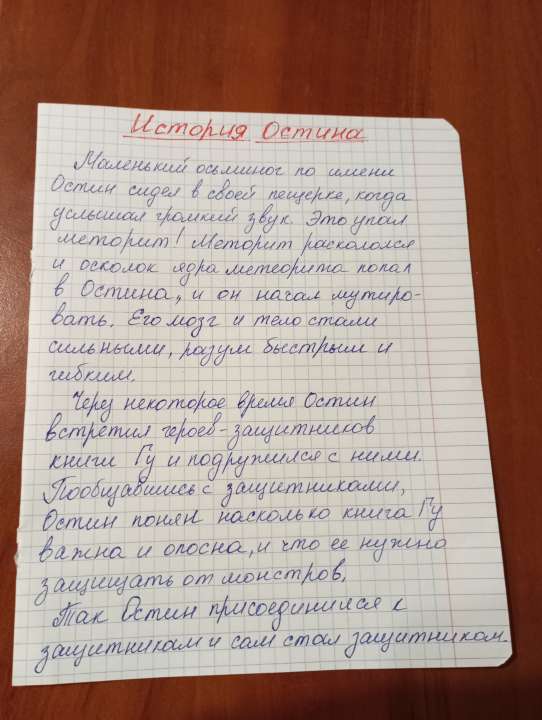 История Остина
Маленький осьминог по имени
Остин сидел в своей пещерке, когда
услышал громкий звук. Это упал
меторит! Меторит раскололся
и осколок ядра метеорита попал
в Остина, и он начал мутиро-
вать. Его мозг и тело стали
сильными, разум быстрым и
гибким.
Через некоторое время Остин
встретил героев-защитников
книги Гу и подружился с ними.
Пообщавшись с защитниками,
Остин понял насколько книга Гу
важна и опасна, и что её нужно
защищать от монстров.
Так Остин присоединился к
защитникам и сам стал защитником.